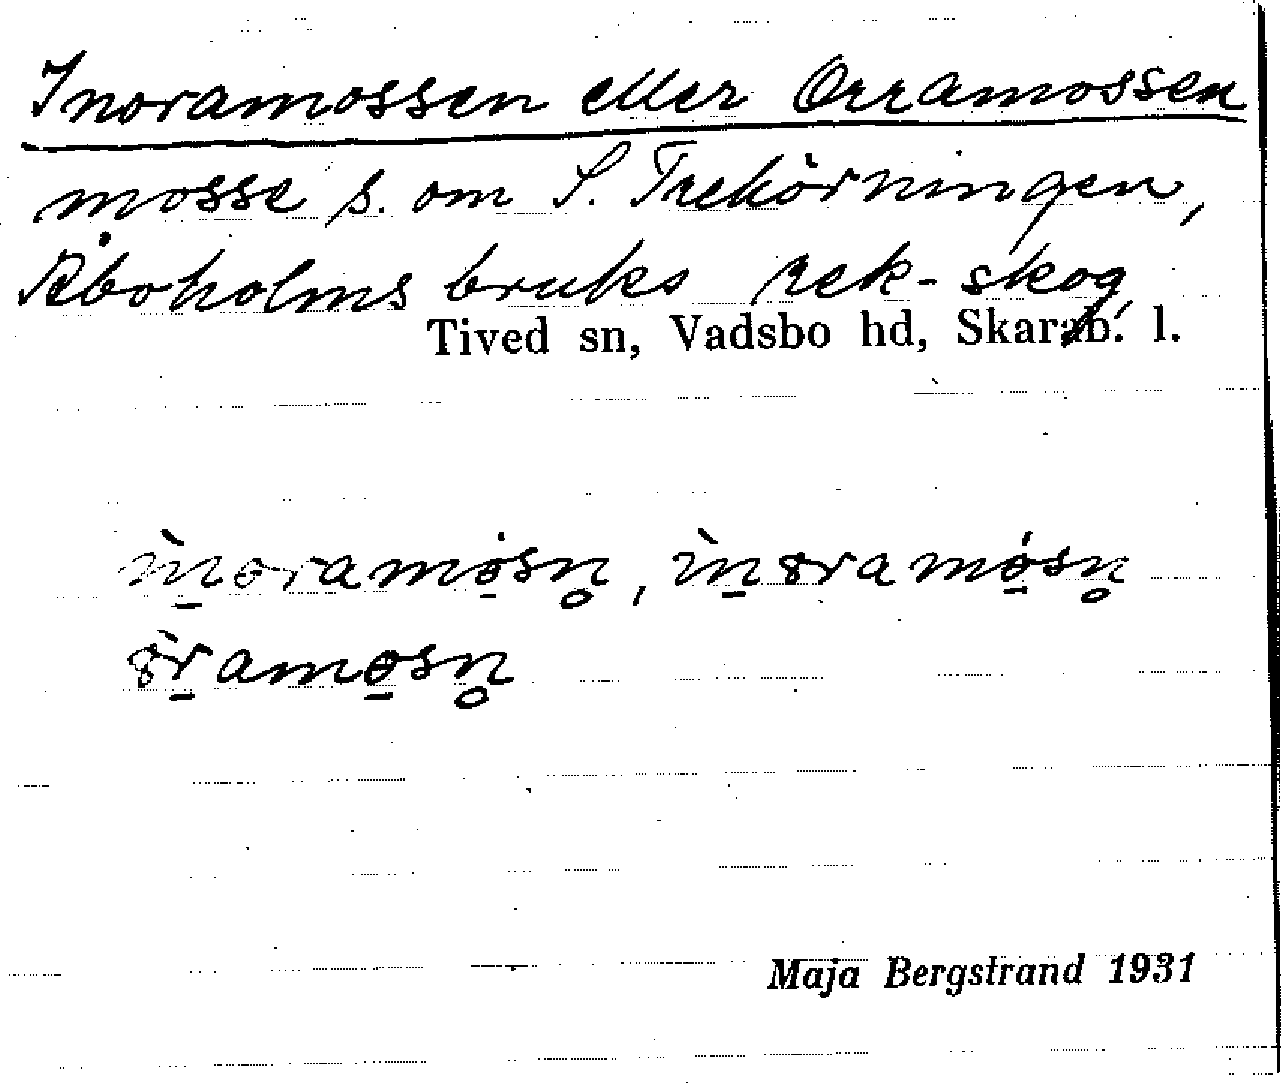 Inoramossen eller Orramossen
mosse s. om S. Trehörningen,
Åboholms bruks rek-skog,
Tived sn, Vadsbo hd, Skarab. l.
ìn̠oramò̠sn̥, ìn̠ɞramó̠sn̥
ɞ̀r̠amo̠sn̥
Maja Bergstrand 1931